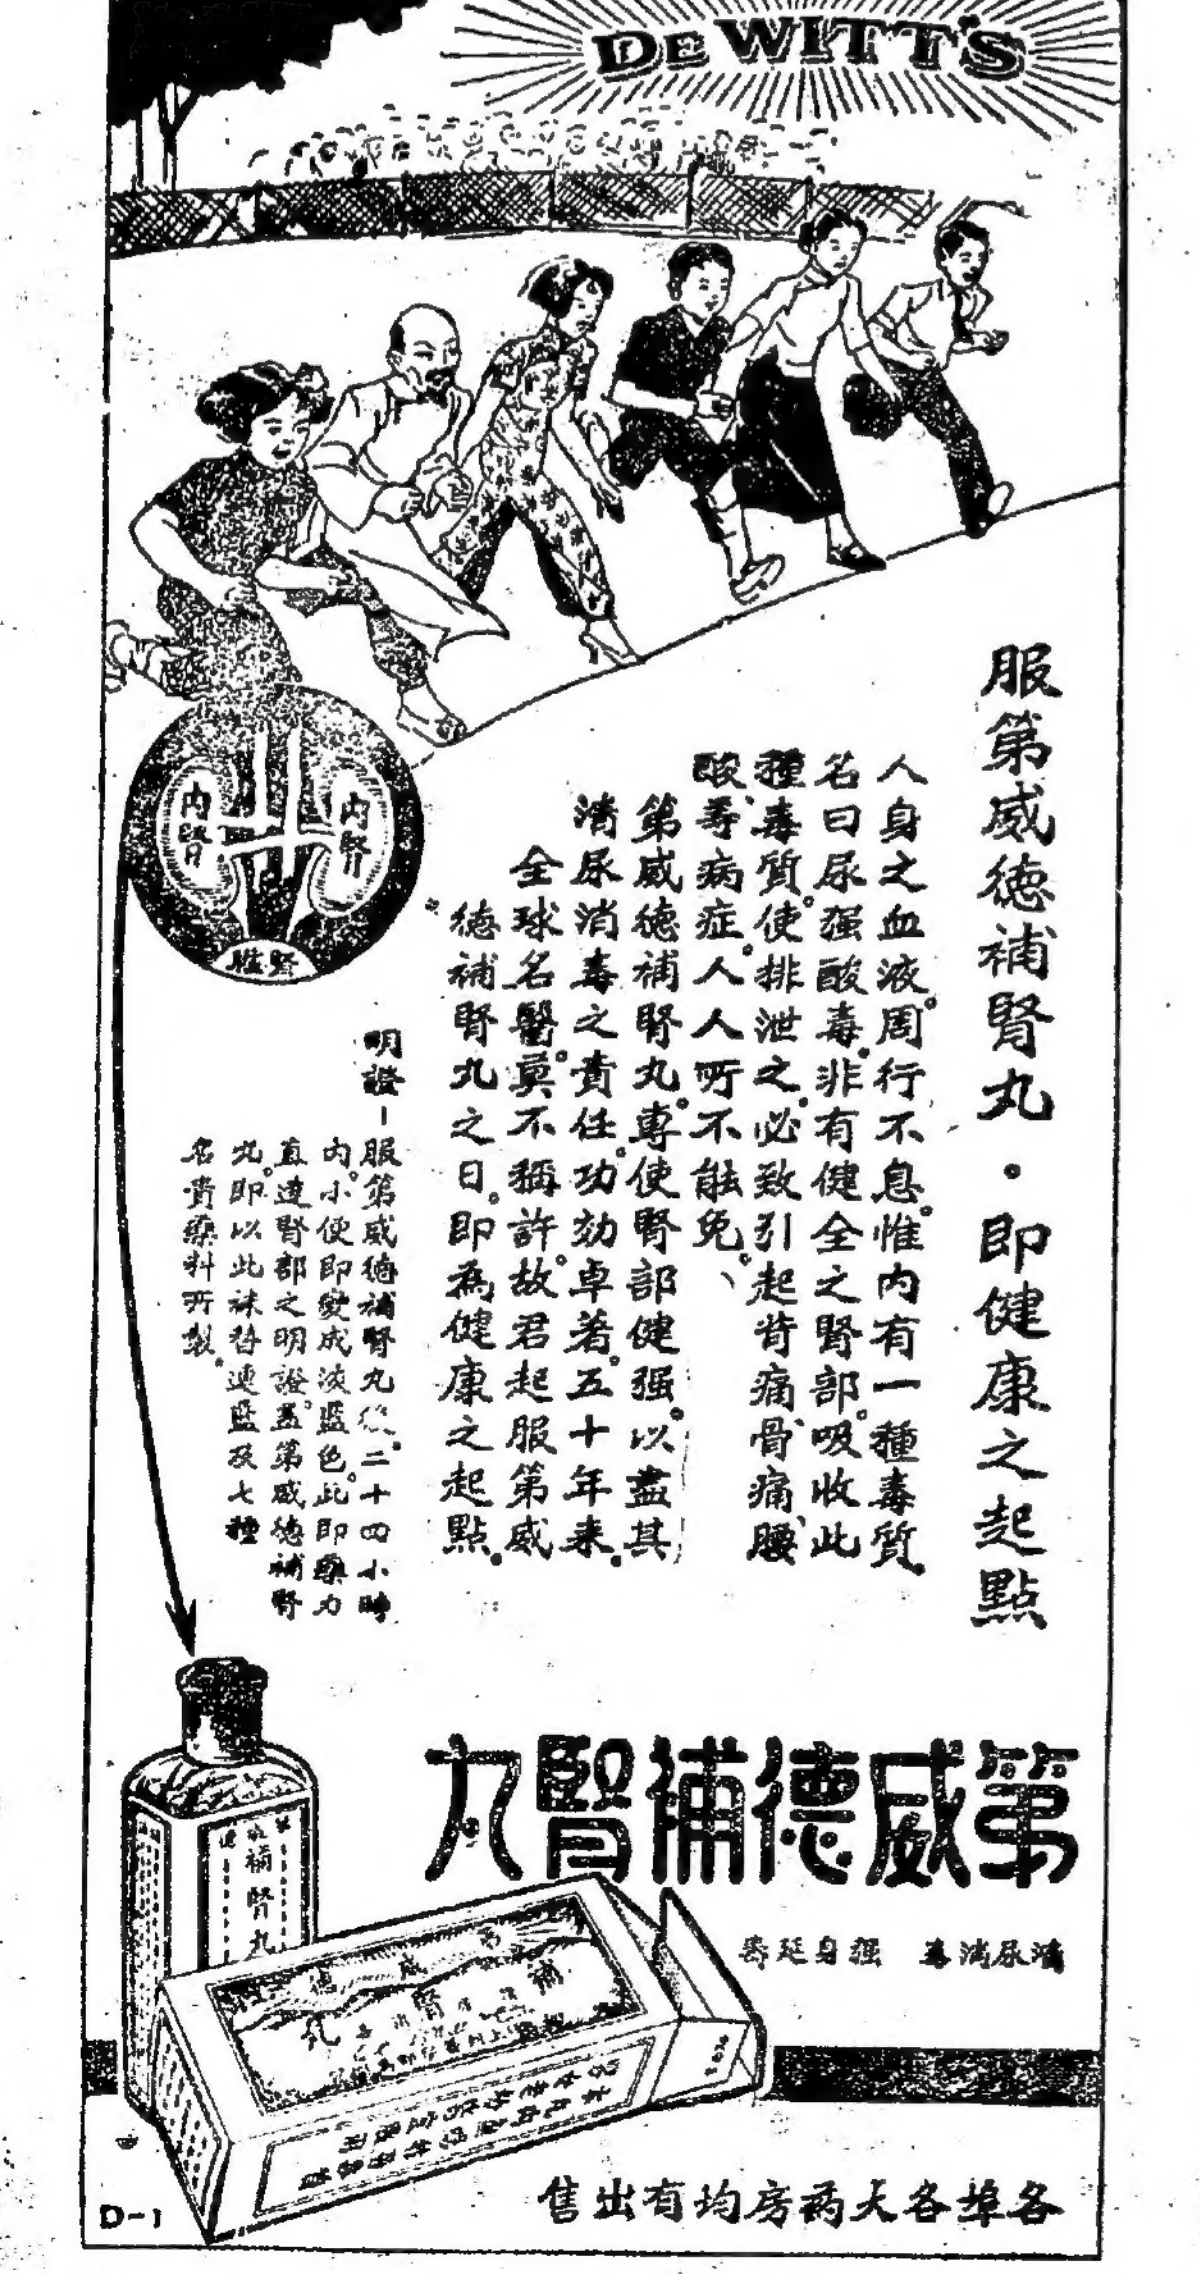 DEWITT'S
服第威德補腎丸・即健康之起點
人身之血液。周行不息。惟内有一種毒質。
名曰尿强酸毒。非有健全之腎部。吸收此
種毒質。使排泄之。必致引起背痛、骨痛、腰
酸、等病症。人人所不能免。
第威德補腎丸。專使腎部健强。以盡其
清尿消毒之責任。功効卓著。五十年来。
全球名醫。莫不稱許。故君起服第威
德補腎丸之日。即為健康之起點。
内腎
内腎
腎
明證-服第威德補腎丸後。二十四小時
内。小便即變成淡藍色。此即藥力
直達腎部之明證。蓋第威德補腎
丸。即以此
藍及七種
名貴藥料所製。
第威德補腎丸
清尿消毒 强身延壽
補腎丸
威德
補腎丸
各埠各大葯房均有出售
D-1